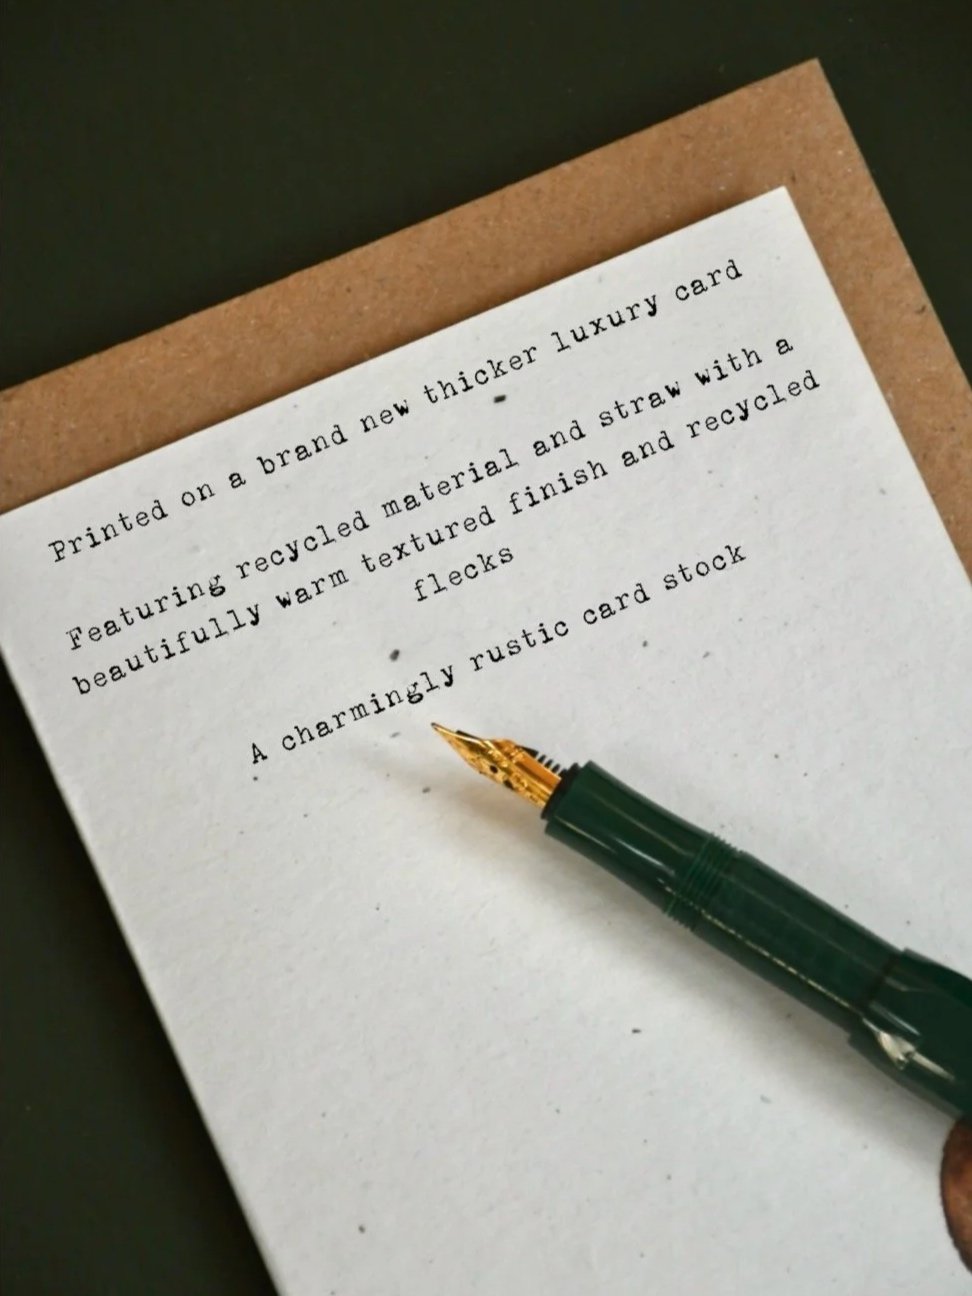 Printed on a brand new thicker luxury card
Featuring recycled material and straw with a
beautifully warm textured finish and recycled
flecks
A charmingly rustic card stock